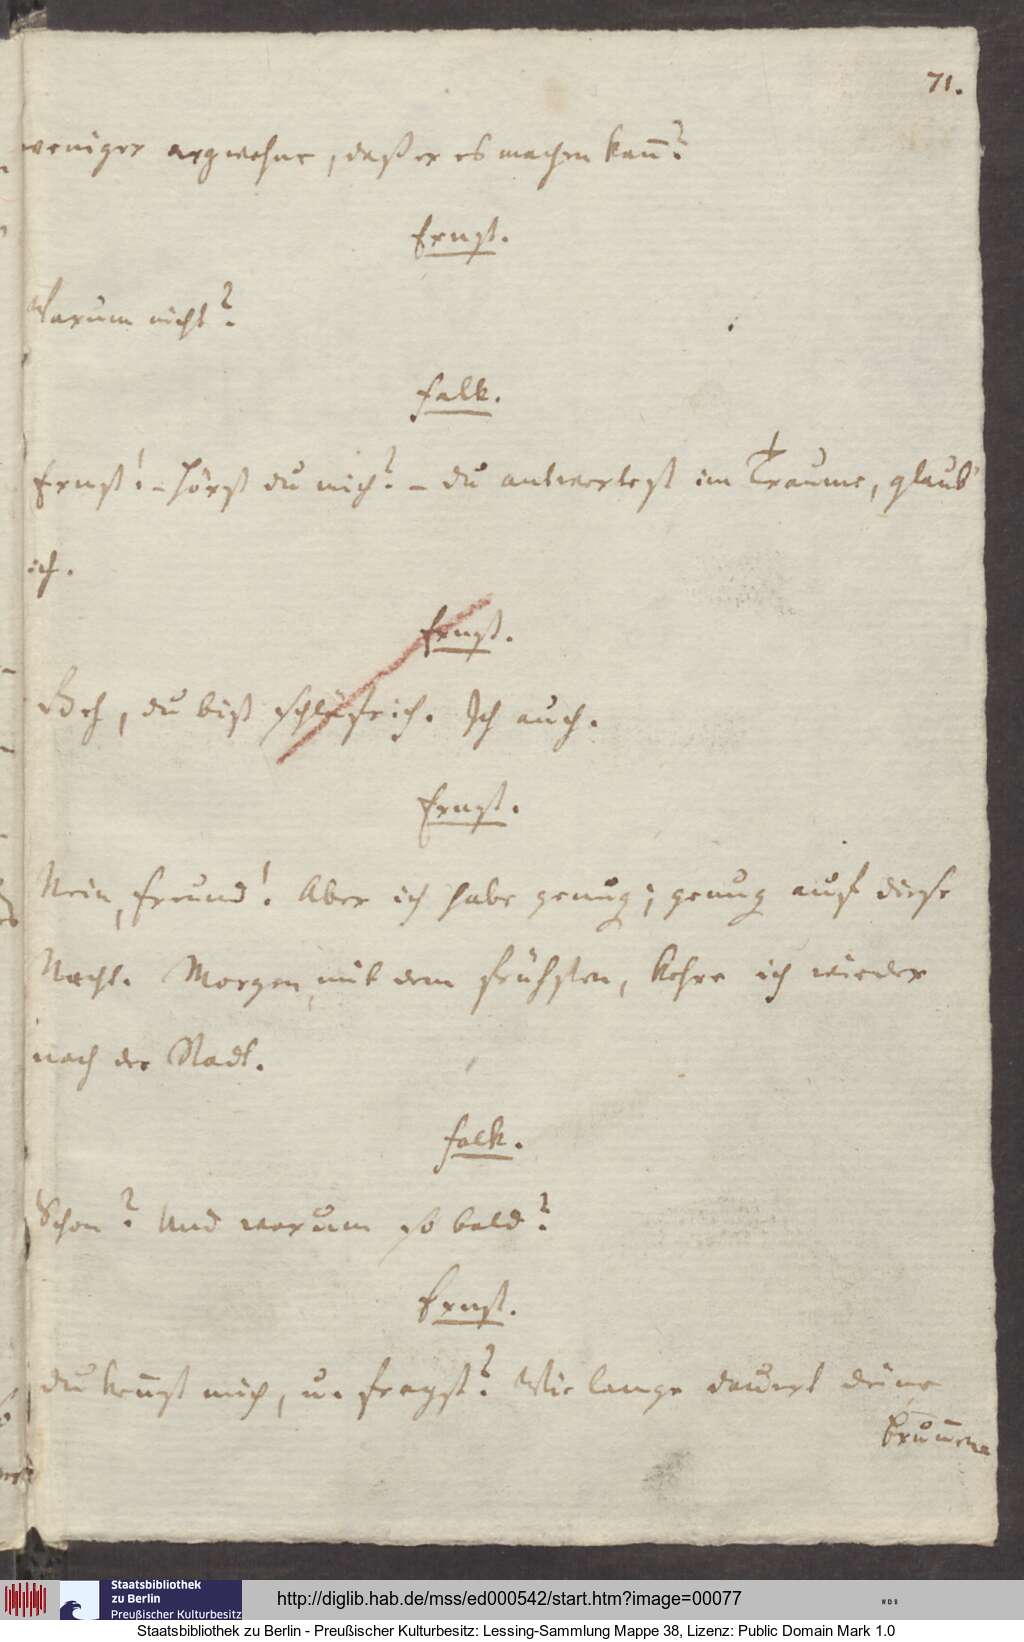 71.
weniger argwohne, daß er es machen kan̅?
Ernst.
Warum nicht?
Falk.
Ernst! - hörst du mich? - du antwortest im Traume, glaub'
ich.
Ernst.
Geh, du bist schläfrich. Ich auch.
Ernst.
Nein, Freund! Aber ich habe genug; genug auf diese
Nacht. Morgen, mit dem frühsten, kehre ich wieder
nach der Stadt.
Falk.
Schon? Und warum so bald?
Ernst.
du ken̅st mich, u. fragst? Wie lange dauert deine
Brun̅en
Staatsbibliothek
zu Berlin
Preußischer Kulturbesitz
http://diglib.hab.de/mss/ed000542/start.htm?image=00077
Staatsbibliothek zu Berlin - Preußischer Kulturbesitz: Lessing-Sammlung Mappe 38, Lizenz: Public Domain Mark 1.0